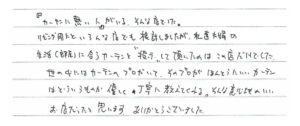 "カーテンに熱い人がいる。そんな店でした。
リビング用カーテンといろんな店でも検討しましたが、私達夫婦の
生活(部屋)に合うカーテンを探して頂いたのはこの店だけでした。
世の中にはカーテンのプロがいて、そのプロがほんとうにいいカーテン
はどういうものか優しく丁寧に教えてくれる。そんな気持ちのいい
お店だったと思います。ありがとうございました。